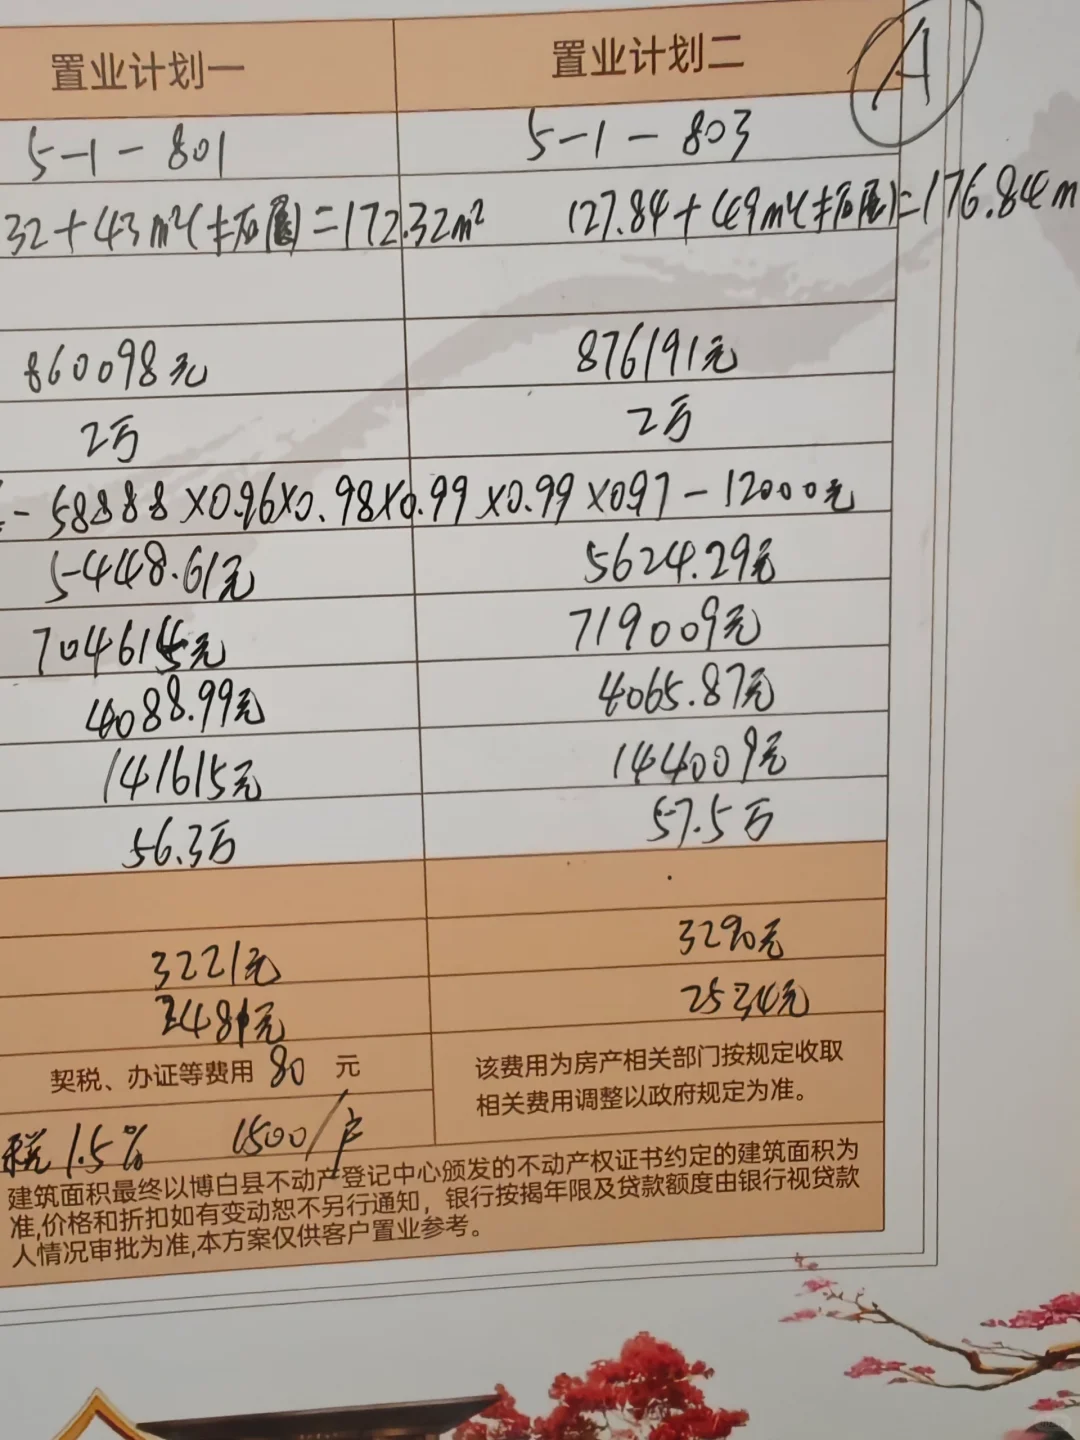 置业计划一 置业计划二 A
5-1-801 5-1-803
32+43m²(拓展)=172.32m² 127.84+49m²(拓展)=176.84m
860098元 876191元
2万 2万
-58888×0.96×0.98×0.99×0.99×0.97-12000元
5448.61元 5624.29元
704615元 719009元
4088.99元 4065.87元
141615元 144009元
56.3万 57.5万
3221元 3290元
2481元 2534元
契税、办证等费用 80 元 该费用为房产相关部门按规定收取
相关费用调整以政府规定为准。
税1.5% 1500/户
建筑面积最终以博白县不动产登记中心颁发的不动产权证书约定的建筑面积为
准,价格和折扣如有变动恕不另行通知，银行按揭年限及贷款额度由银行视贷款
人情况审批为准,本方案仅供客户置业参考。